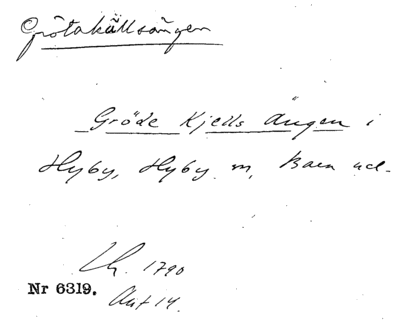 Grötakällsängen
Gröde Kjells Ängen i
Hyby, Hyby sn, Bara hd.
Lh. 1790
Nr 6319.
Akt 14.